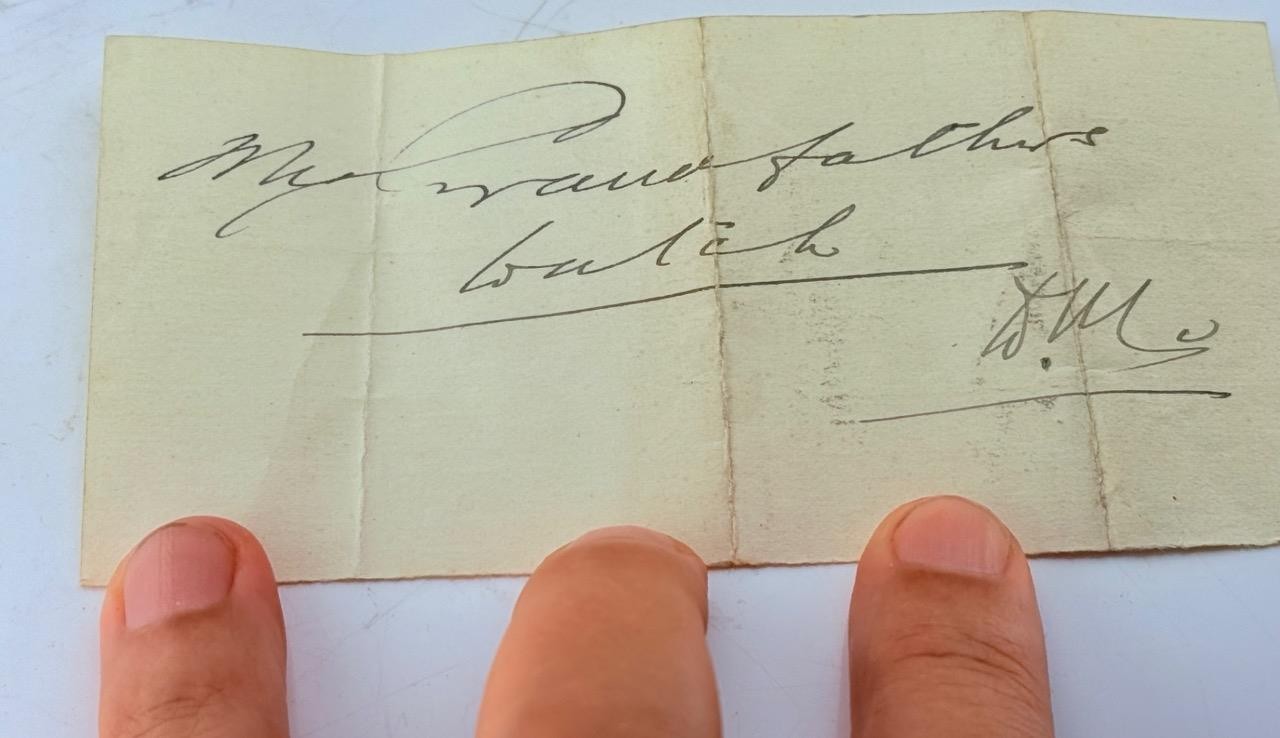 My Grandfathers
Watch
D. Mc